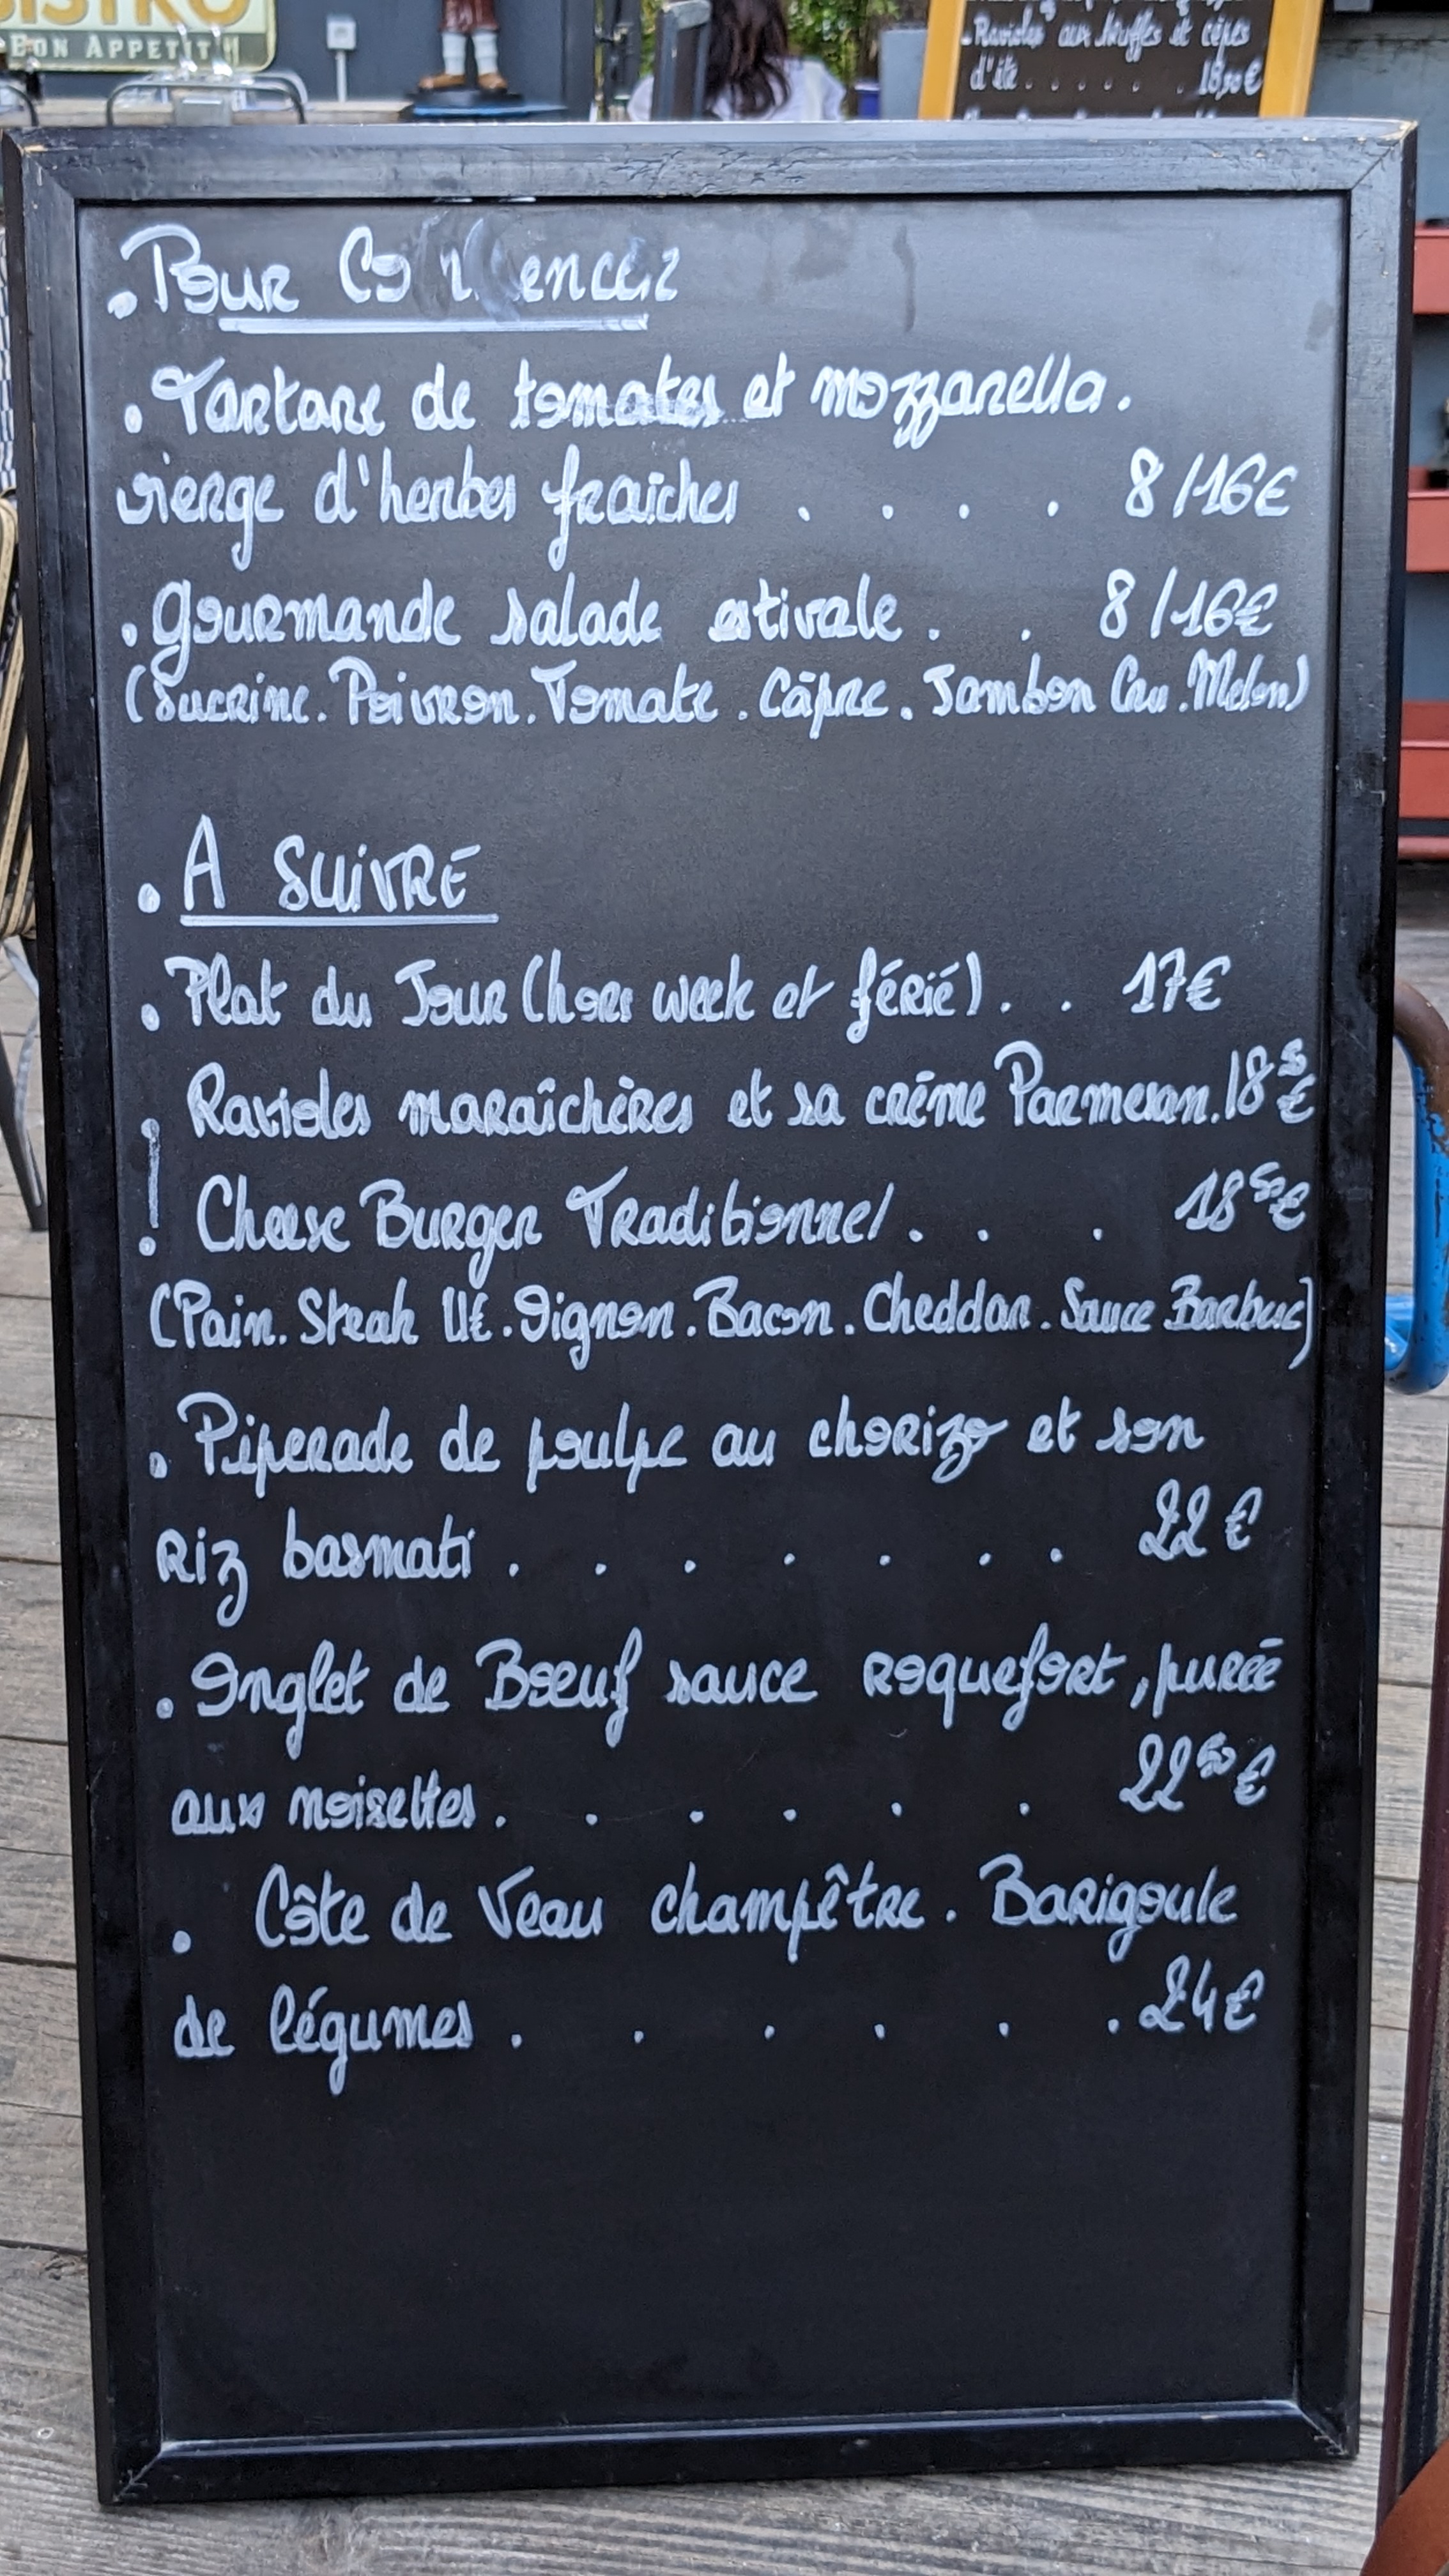 BISTRO
BON APPETIT !!
. Ravioles aux truffes et cèpes
d'été . . . . . . 18,50€
. Pour Co encer
. Tartare de tomates et mozzarella.
vierge d'herbes fraîches . . . . 8/16€
. Gourmande salade estivale . . 8/16€
(Sucrine. Poivron. Tomate . Câpre . Jambon Cru . Melon)
. A SUIVRE
. Plat du Jour (hors week et férié) . . 17€
. Ravioles maraîchères et sa crème Parmesan. 18⁵€
! Cheese Burger Traditionnel . . . 18⁵⁰€
(Pain. Steak UE. Oignon. Bacon. Cheddar. Sauce Barbuc)
. Piperade de poulpe au chorizo et son
Riz basmati . . . . . . . 22€
. Onglet de Bœuf sauce roquefort, purée
aux noisettes . . . . . . 22⁵⁰€
. Côte de Veau champêtre. Barigoule
de légumes . . . . . . 24€